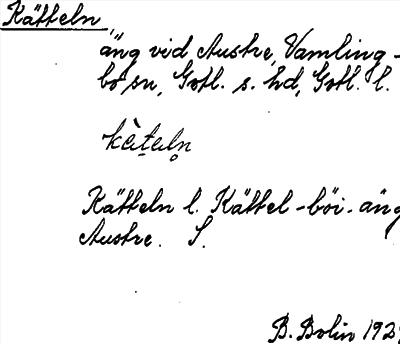 Kätteln
äng vid Austre, Vamling-
bo sn, Gotl. s. hd, Gotl. l.
kèteln̥
Kätteln l. Kättel-böi-äng
Austre. S.
B. Bolin 192